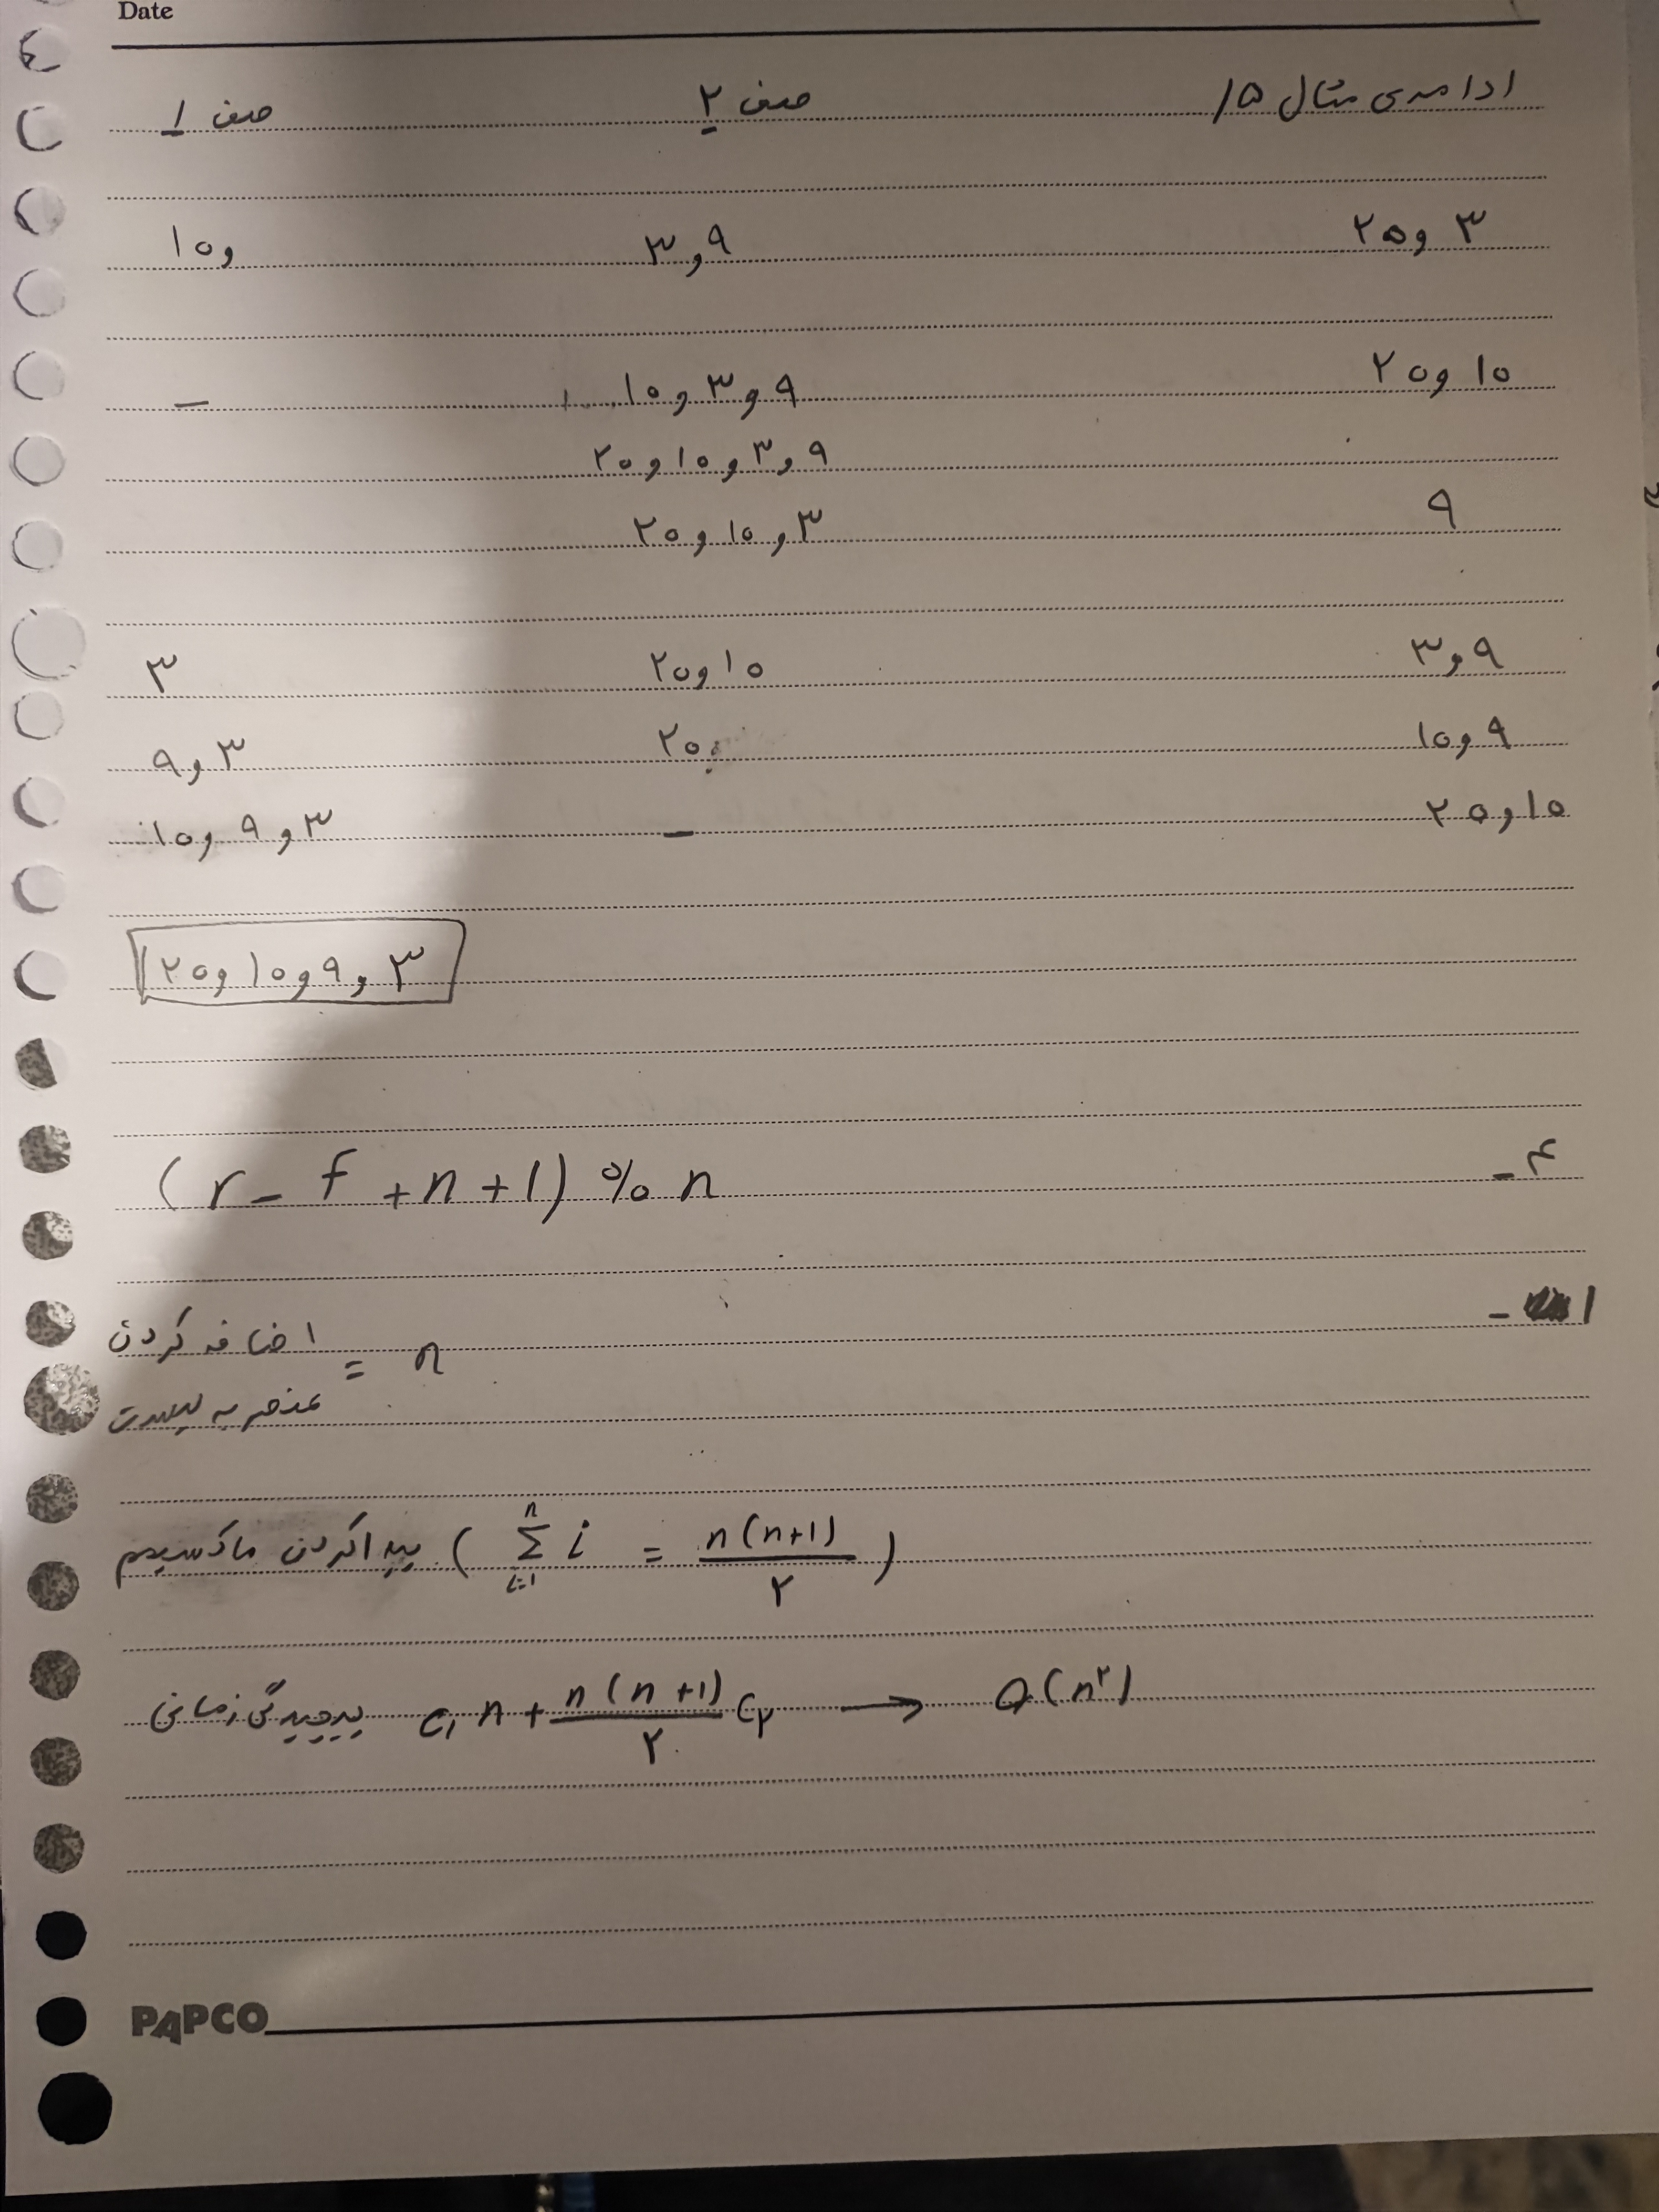 Date
ادامه‌ی مثال ۱۵ صف ۲ صف ۱
۳ و ۲۰ ۹ و ۳ و ۱۰
۱۰ و ۲۰ ۹ و ۳ و ۱۰ –
۹ و ۳ و ۱۰ و ۲۰
۹ ۳ و ۱۰ و ۲۰
۹ و ۳ ۱۰ و ۲۰ ۳
۹ و ۱۰ ۲۰ ۳ و ۹
۱۰ و ۲۰ – ۳ و ۹ و ۱۰
۳ و ۹ و ۱۰ و ۲۰
۴- (r - f + n + 1) % n
۱-
اضافه کردن
عنصر به لیست = n
پیدا کردن ماکسیمم ( n Σ i=1 i = n(n+1) / ۲ )
پیچیدگی زمانی c₁ n + n(n+1) / ۲ c۲ → O(n۲)
PAPCO